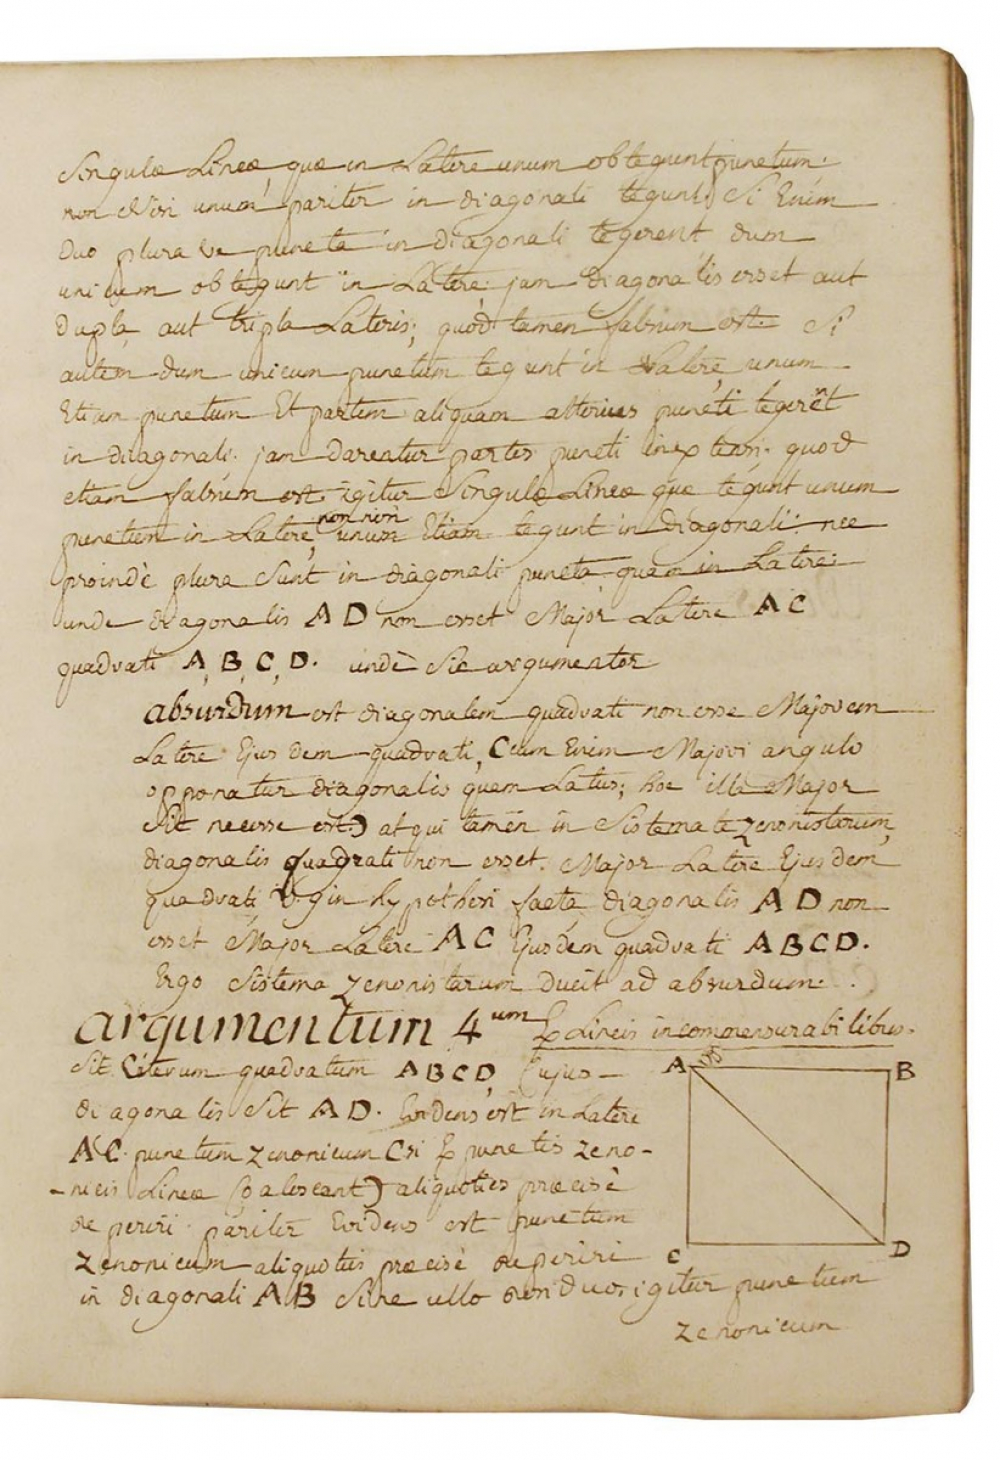 Singulæ Lineæ, quæ in Latere unum obtegunt punctum,
non Nisi unum pariter in diagonali tegunt. Si Enim
Duo plura ve puncta in diagonali tegerent dum
unicum obtegunt in Latere jam diagonalis esset aut
Dupla, aut tripla Lateris; quod tamen falsum est. Si
autem dum unicum punctum tegunt in Latere, unum
Etiam punctum Et partem aliquam alterius puncti tegerêt
in diagonali. jam Darentur partes puncti inextensi. quod
etiam falsum est. igitur Singulæ Lineæ quæ tegunt unum
punctum in Latere, non nisi unum Etiam tegunt in diagonali. nec
proindè plura Sunt in diagonali puncta quam in Latere.
unde diagonalis AD non esset Major Latere AC
quadrati A, B, C, D. undè Sic argumentor
absurdum est diagonalem quadrati non esse Majorem
Latere Ejusdem quadrati, (cum Enim Majori angulo
opponatur diagonalis quam Latus; hoc illa Major
Sit necesse est) atqui tamen in Sistemate zenonistarum,
diagonalis quadrati non esset Major Latere Ejusdem
quadrati Vg in hypothesi facta diagonalis AD non
esset Major Latere AC Ejusdem quadrati ABCD.
Ergo Sistema zenonistarum ducit ad absurdum.
argumentum 4um ex Lineis incommensurabilibus.
Sit iterum quadratum ABCD, Cujus
diagonalis Sit AD. Evidens est in Latere
AC punctum zenonicum (si ex punctis zeno-
-nicis Lineæ coalescant) aliquoties præcisè
reperiri. pariter Evidens est punctum
zenonicum aliquoties præcisè reperiri
in diagonali AB Sine ullo residuo. igitur punctum
zenonicum
A
B
C
D